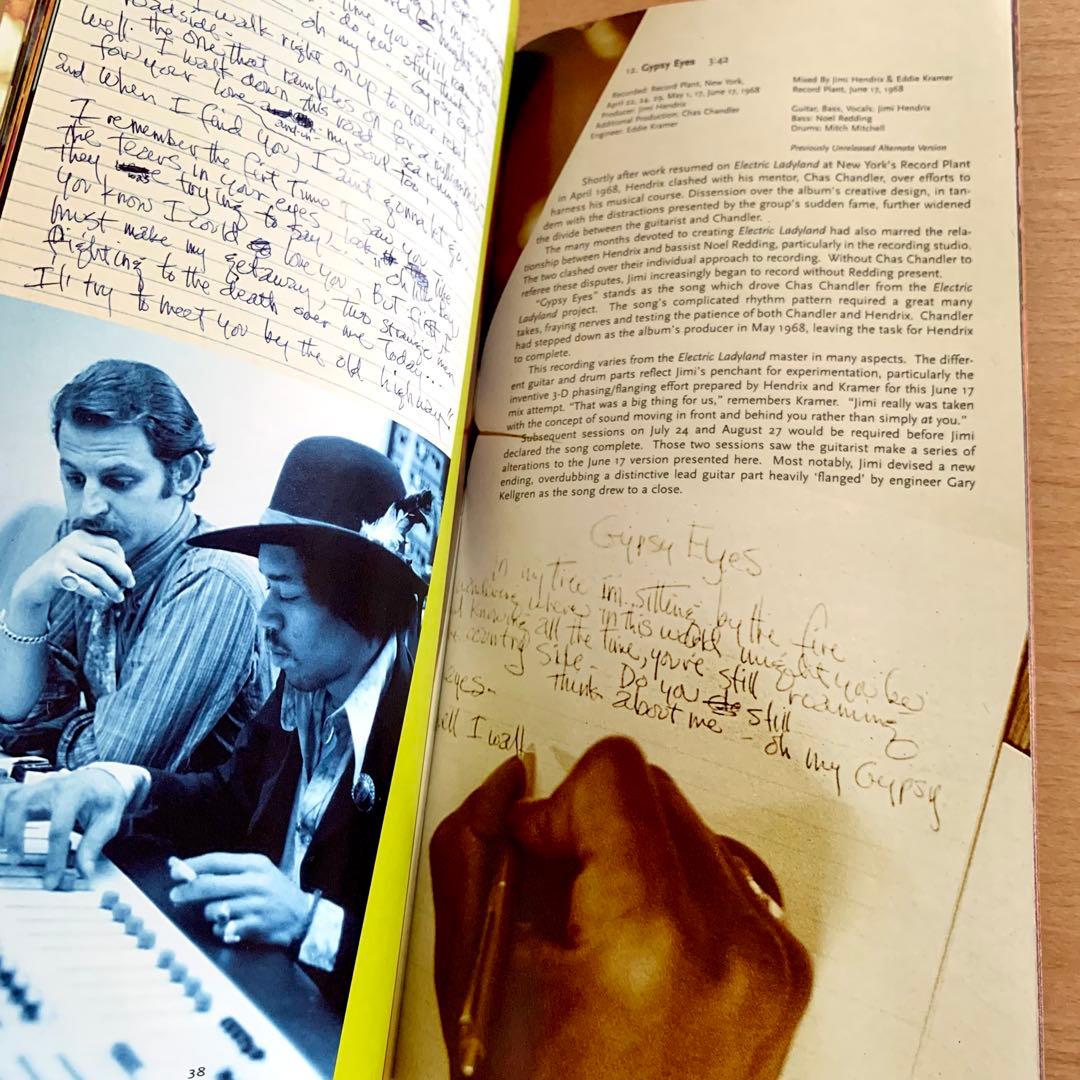 time you still
oh my - Gypsy
do you still think
I walk right on up to your rebel
roadside -
well. the one that rambles on for a million
for I walk down this road
your love and in my soul
and when I find you, I aint gonna let go
I remember the first time I saw you
the Tears in your eyes look like
they trying to say, oh
you know I could love you, But first I
must make my getaway, two strange men
fighting to the death over me Today...
I'll try to meet you by the old highway"
38
12. Gypsy Eyes 3:42
Recorded: Record Plant, New York,
April 22, 24, 29, May 1, 17, June 17, 1968
Producer: Jimi Hendrix
Additional Production: Chas Chandler
Engineer: Eddie Kramer
Mixed By Jimi Hendrix & Eddie Kramer
Record Plant, June 17, 1968
Guitar, Bass, Vocals: Jimi Hendrix
Bass: Noel Redding
Drums: Mitch Mitchell
Previously Unreleased Alternate Version
Shortly after work resumed on Electric Ladyland at New York's Record Plant
in April 1968, Hendrix clashed with his mentor, Chas Chandler, over efforts to
harness his musical course. Dissension over the album's creative design, in tan-
dem with the distractions presented by the group's sudden fame, further widened
the divide between the guitarist and Chandler.
The many months devoted to creating Electric Ladyland had also marred the rela-
tionship between Hendrix and bassist Noel Redding, particularly in the recording studio.
The two clashed over their individual approach to recording. Without Chas Chandler to
referee these disputes, Jimi increasingly began to record without Redding present.
"Gypsy Eyes" stands as the song which drove Chas Chandler from the Electric
Ladyland project. The song's complicated rhythm pattern required a great many
takes, fraying nerves and testing the patience of both Chandler and Hendrix. Chandler
had stepped down as the album's producer in May 1968, leaving the task for Hendrix
to complete.
This recording varies from the Electric Ladyland master in many aspects. The differ-
ent guitar and drum parts reflect Jimi's penchant for experimentation, particularly the
inventive 3-D phasing/flanging effort prepared by Hendrix and Kramer for this June 17
mix attempt. "That was a big thing for us," remembers Kramer. "Jimi really was taken
with the concept of sound moving in front and behind you rather than simply at you."
Subsequent sessions on July 24 and August 27 would be required before Jimi
declared the song complete. Those two sessions saw the guitarist make a series of
alterations to the June 17 version presented here. Most notably, Jimi devised a new
ending, overdubbing a distinctive lead guitar part heavily 'flanged' by engineer Gary
Kellgren as the song drew to a close.
Gypsy Eyes
in my tree im sitting by the fire
where in this world might you be
knowing all the time, you're still roaming
country side - Do you still
think about me - oh my Gypsy
eyes-
ell I walk